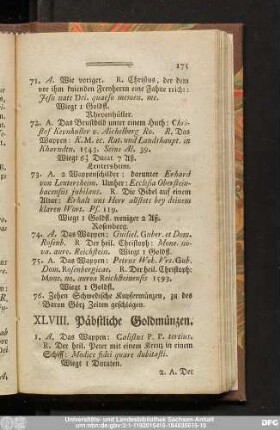 175
71. A. Wie voriger. R. Christus, der dem
vor ihm knienden Freyherrn eine Fahne reicht:
Jesu nate Dei. quaeso memen. me.
Wiegt 1 Goldfl.
Khevenhüller.
72. A. Das Brustbild unter einem Huth: Chri-
stof Kevnhuller v. Aichelberg Ro. R. Das
Wappen: K. M. ec. Rat. und Landshaupt. in
Kharndtn. 1543. Seins Al. 39.
Wiegt 6½ Ducat. 7 Aß.
Leutersheim.
73. A. 2 Wappenschilder: darunter Erhard
von Leutersheim. Umher: Ecclesia Obersteins-
bacensis jubilans. R. Die Bibel auf einem
Altar: Erhalt uns Herr allstett bey deinem
klaren Wort. Ps. 119.
Wiegt 1 Goldfl. weniger 2 Aß.
Rosenberg.
74. A. Das Wappen: Guilel. Guber. et Dom.
Rosenb. R Der heil. Christoph: Mone. no-
va. aure. Reichstein. Wiegt 1 Goldfl.
75. A. Das Wappen: Petrus Wok. Vrs. Gub.
Dom. Rosenbergicae. R. Der heil. Christoph:
Mone. no. aurea Reichsteinensis 1593.
Wiegt 1 Goldfl.
76. Zehen Schwedische Kupfermünzen, zu des
Baron Görz Zeiten geschlagen.
XLVIII. Päbstliche Goldmünzen.
1. A. Das Wappen: Calistus P. P. tertius.
R. Der heil. Peter mit einem Kreuz in einem
Schiff: Modice fidei quare dubitasti.
Wiegt 1 Ducaten.
2. A. Der
Universitäts- und Landesbibliothek Sachsen-Anhalt
DFG